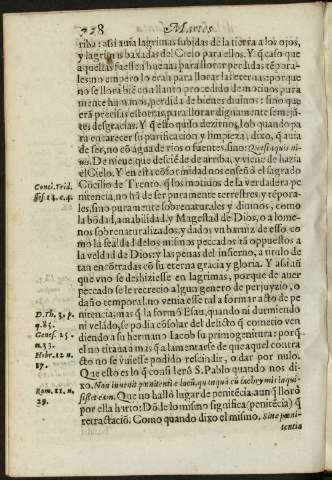 728 Martes
riba: assi auia lagrimas subidas de la tierra a los ojos,
y lagrimas baxadas del Cielo para ellos. Y q̃ caso que
aquellas fuesse buenas para llorar perdidas tẽpora-
les: no empero lo eran para llorar las eternas: porque
no se llora biẽ con llanto procedido de motiuos pura
mente humanos, perdida de bienes diuinos: sino que
erã precisas estotras, para llorar dignamente semejã
tes desgracias. Y q̃ esso quiso dezirnos, Iob quando pa
ra encarecer su purificacion y limpieza, dixo, q̃ auia
de ser, no cõ agua de rios o fuentes, sino: Quasi aquis ni-
uis. De nieue, que desciẽde de arriba, y viene de hazia
el Cielo. Y en esta cõformidad nos enseñó el sagrado
Cõcilio de Trento, q̃ los motiuos de la verdadera pe
nitencia, no hã de ser puramente terrestres, y tẽpora-
les, sino puramente sobrenaturales y diuinos, como
la bõdad, amabilidad, y Magestad de Dios, o a lome-
nos sobrenaturalizados, y dados vn barniz de esso, co
mo la fealdad de los mismos peccados tã oppuestos a
la veldad de Dios, y las penas del infierno, a titulo de
tan encõtradas cõ su eterna gracia y gloria. Y assi aũ
que vno se deshiziesse en lagrimas, porque de auer
peccado se le recrecio algun genero de perjuyzio, o
daño temporal, no venia esse tal a formar acto de pe
nitencia; mas q̃ la formó Esau, quando ni durmiendo
ni velãdo, se podia cõsolar del delicto q̃ cometio ven
diendo a su hermano Iacob su primogenitura: porq̃
el no tiraua a mas q̃ a lamentarse de que aquel contra
cto no se vuiesse podido rescindir, o dar por nulo.
Que esto es lo q̃ consideró S. Pablo quando nos di-
xo. Non inuenit pœnitentiæ locũ, quanquã cũ lachrymis inqui-
sisset eam. Que no halló lugar de penitẽcia aunq̃ lloró
por ella harto: Dõde lo mismo significa (penitẽcia) q̃
retractaciõ. Como quando dixo el mismo. Sine pœni-
tentia
Conci. Trid.
sess. 14. c. 4.
D. Th. 3. p.
q. 85.
Genes. 25.
n. 33.
Hebr. 12. n.
17.
Rom. 11. n.
29.